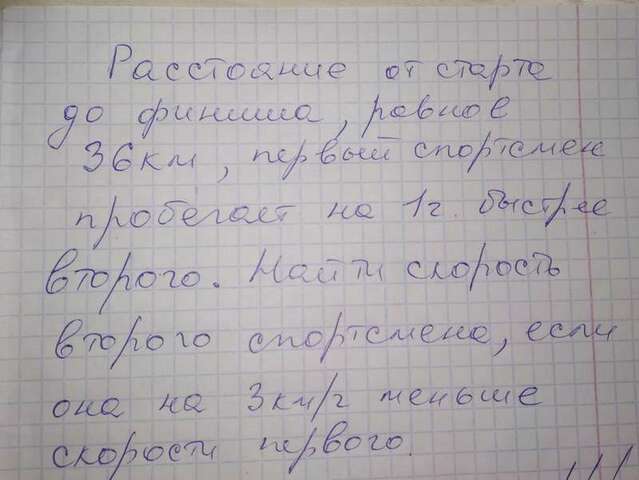 Расстояние от старта
до финиша, равное
36км, первый спортсмен
пробегает на 1ч. быстрее
второго. Найти скорость
второго спортсмена, если
она на 3км/ч меньше
скорости первого.